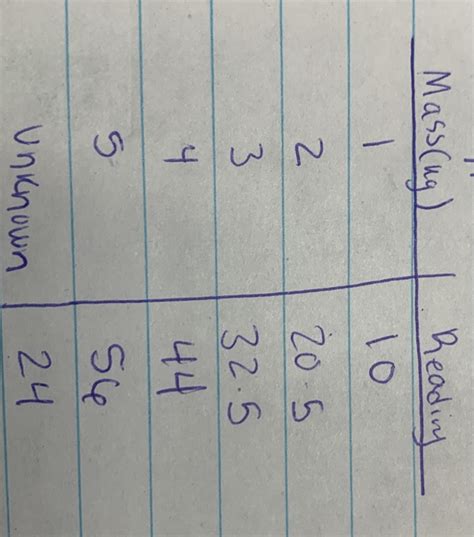 Mass(ug) Reading
1 10
2 20.5
3 32.5
4 44
5 56
Unknown 24